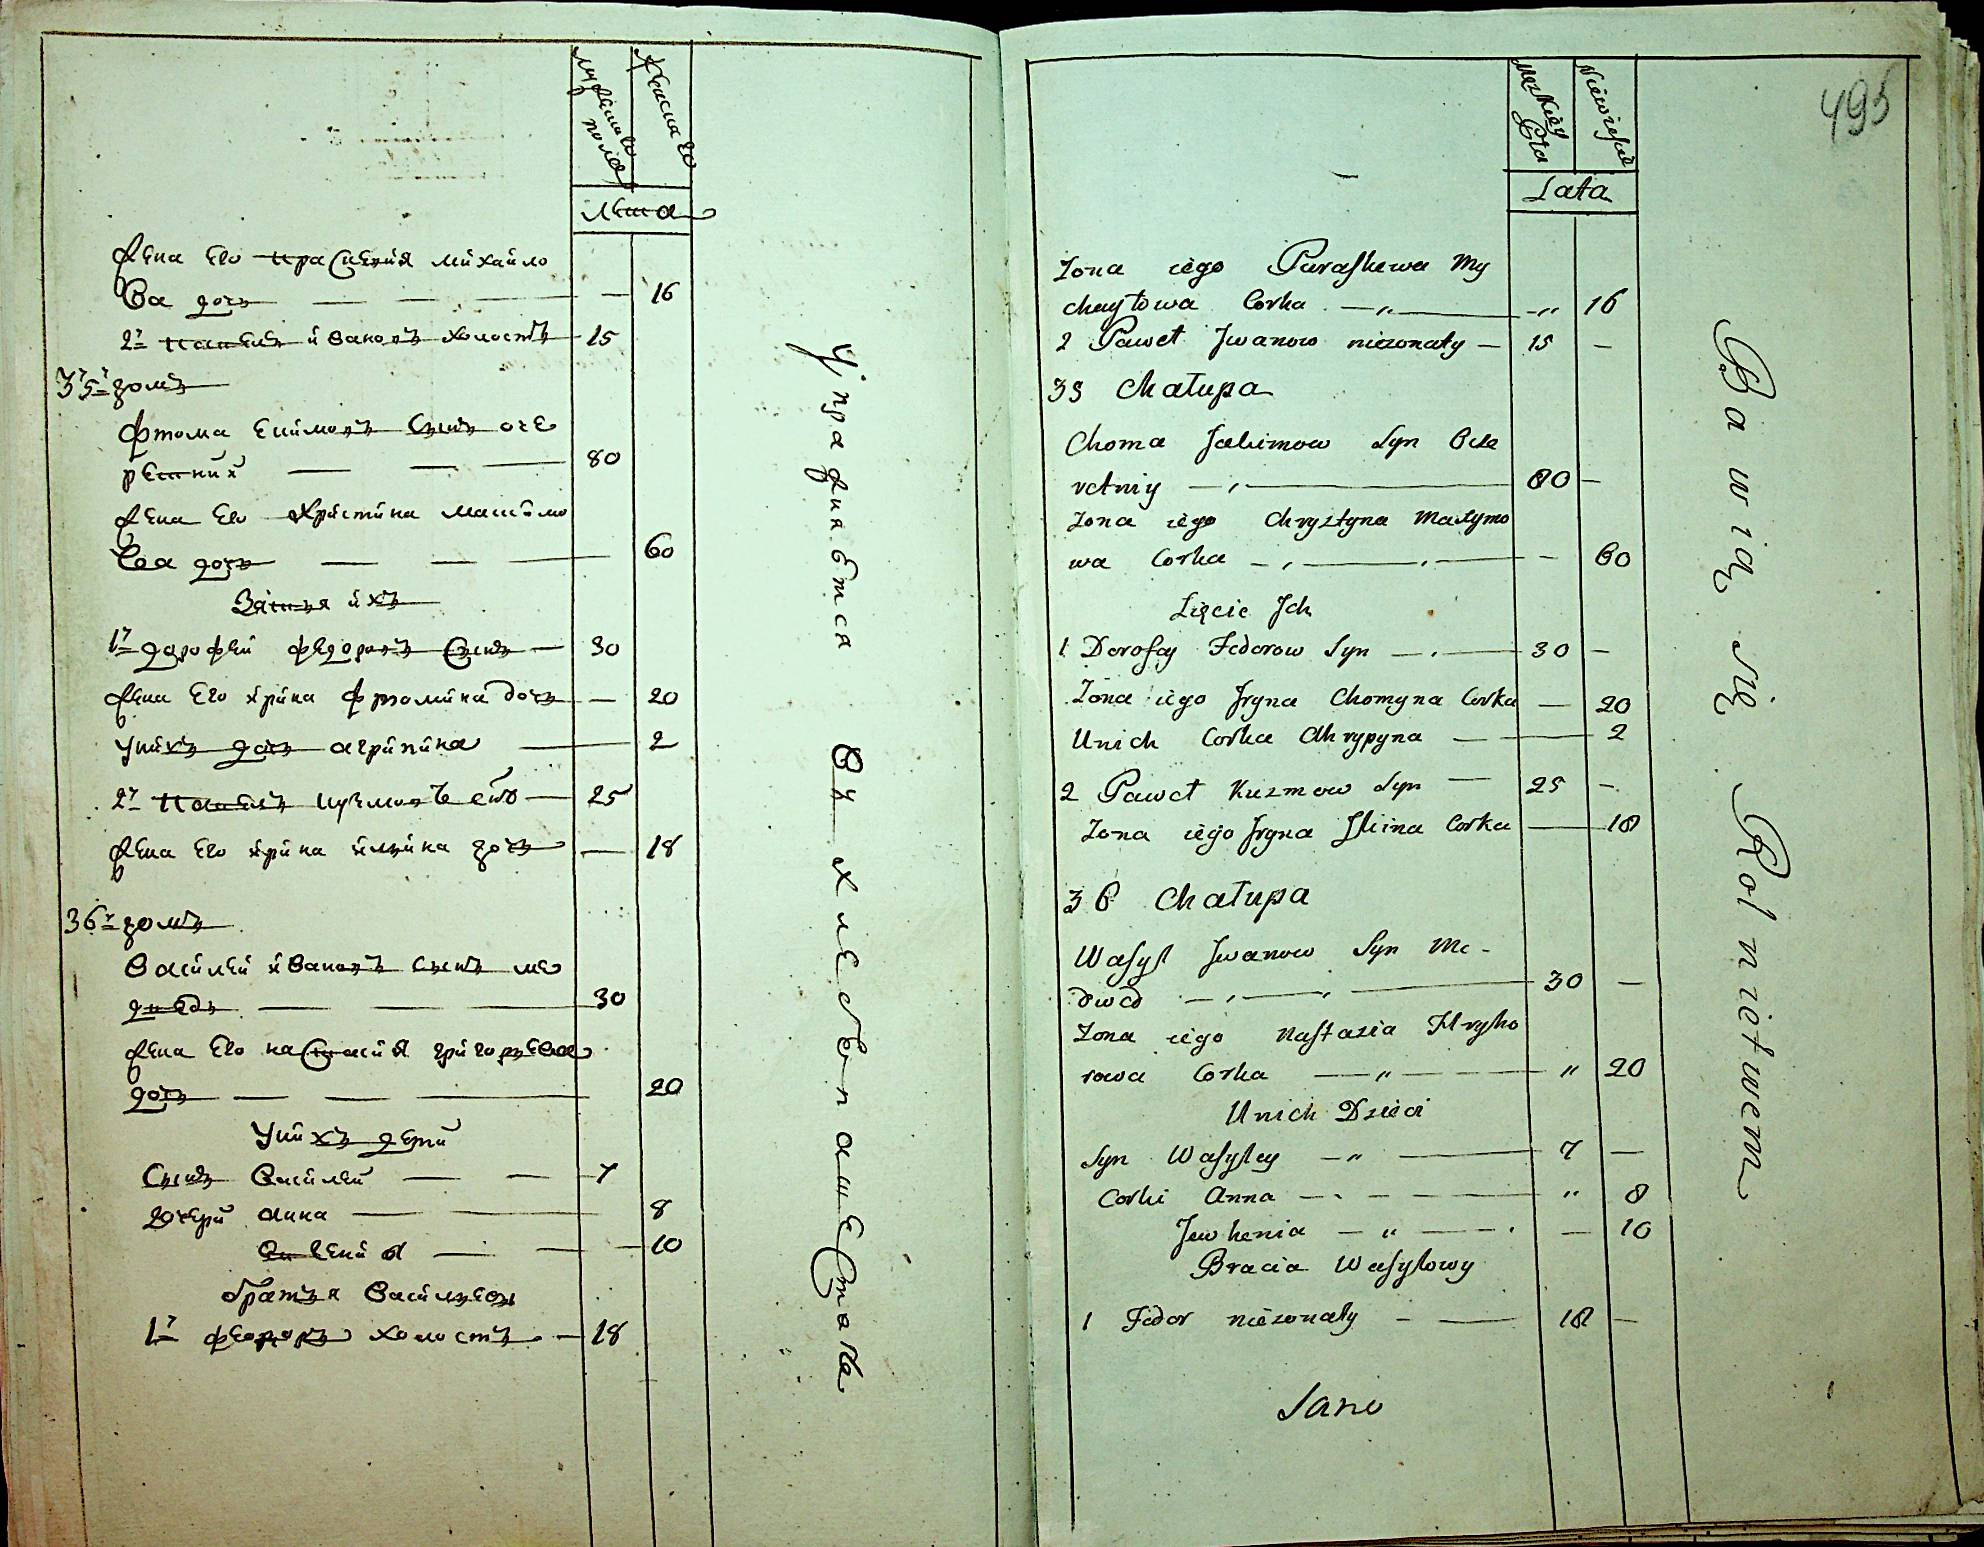 мужеска полу
женска го
лета
жена его праскевия михайло
ва дочь 16
2й павелъ ивановъ холостъ 15
35й домъ
фтома екимовъ сынъ оче
ретний 80
жена его христина максимо
ва дочь 60
Зятья ихъ
1й дорофей федоровъ сынъ 30
жена его ирина фтомина дочь 20
У нихъ дочь агрипина 2
2й павелъ кузмовъ сынъ 25
жена его ирина ильина дочь 18
36й домъ
василей ивановъ сынъ ме
дведь 30
жена его настасия григорьева
дочь 20
У нихъ дети
Сынъ василей 7
дочери анна 8
евгения 10
братья васильевы
1й федоръ холостъ 18
Упражняются въ хлебопашестве
495
Męzkiey Płci
Niewieskie
Lata
Zona iego Paraskewa My
chayłowa Corka 16
2 Paweł Jwanow niezonaty 15
35 Chałupa
Choma Jakimow SynOcze
retniy 80
Zona iego Chrystyna Maxymo
wa Corka 60
Zięcie Jch
1 Dorofey Fedorow Syn 30
Zona iego Jryna Chomyna Corka 20
U nich Corka Ahrypyna 2
2 Paweł Kuzmow Syn 25
Zona iego Jryna Jliina Corka 18
36 Chałupa
Wasyl Jwanow Syn Me-
dwed 30
Zona iego Nastazia Hryho
rowa Corka " 20
U nich Dzieci
Syn Wasyley 7
Corki Anna " 8
Jewhenia 10
Bracia Wasylowy
1 Fedor niezonaty 18
Bawią się Rolnictwem